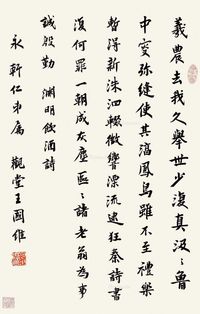 羲農去我久舉世少復真汲〻魯
中叟弥縫使其淳鳳鳥雖不至禮樂
暫得新洙泗輟微響漂流逮狂秦詩書
復何罪一朝成灰塵區〻諸老翁為事
誠殷勤 淵明飲酒詩
永軒仁弟屬 觀堂王國維